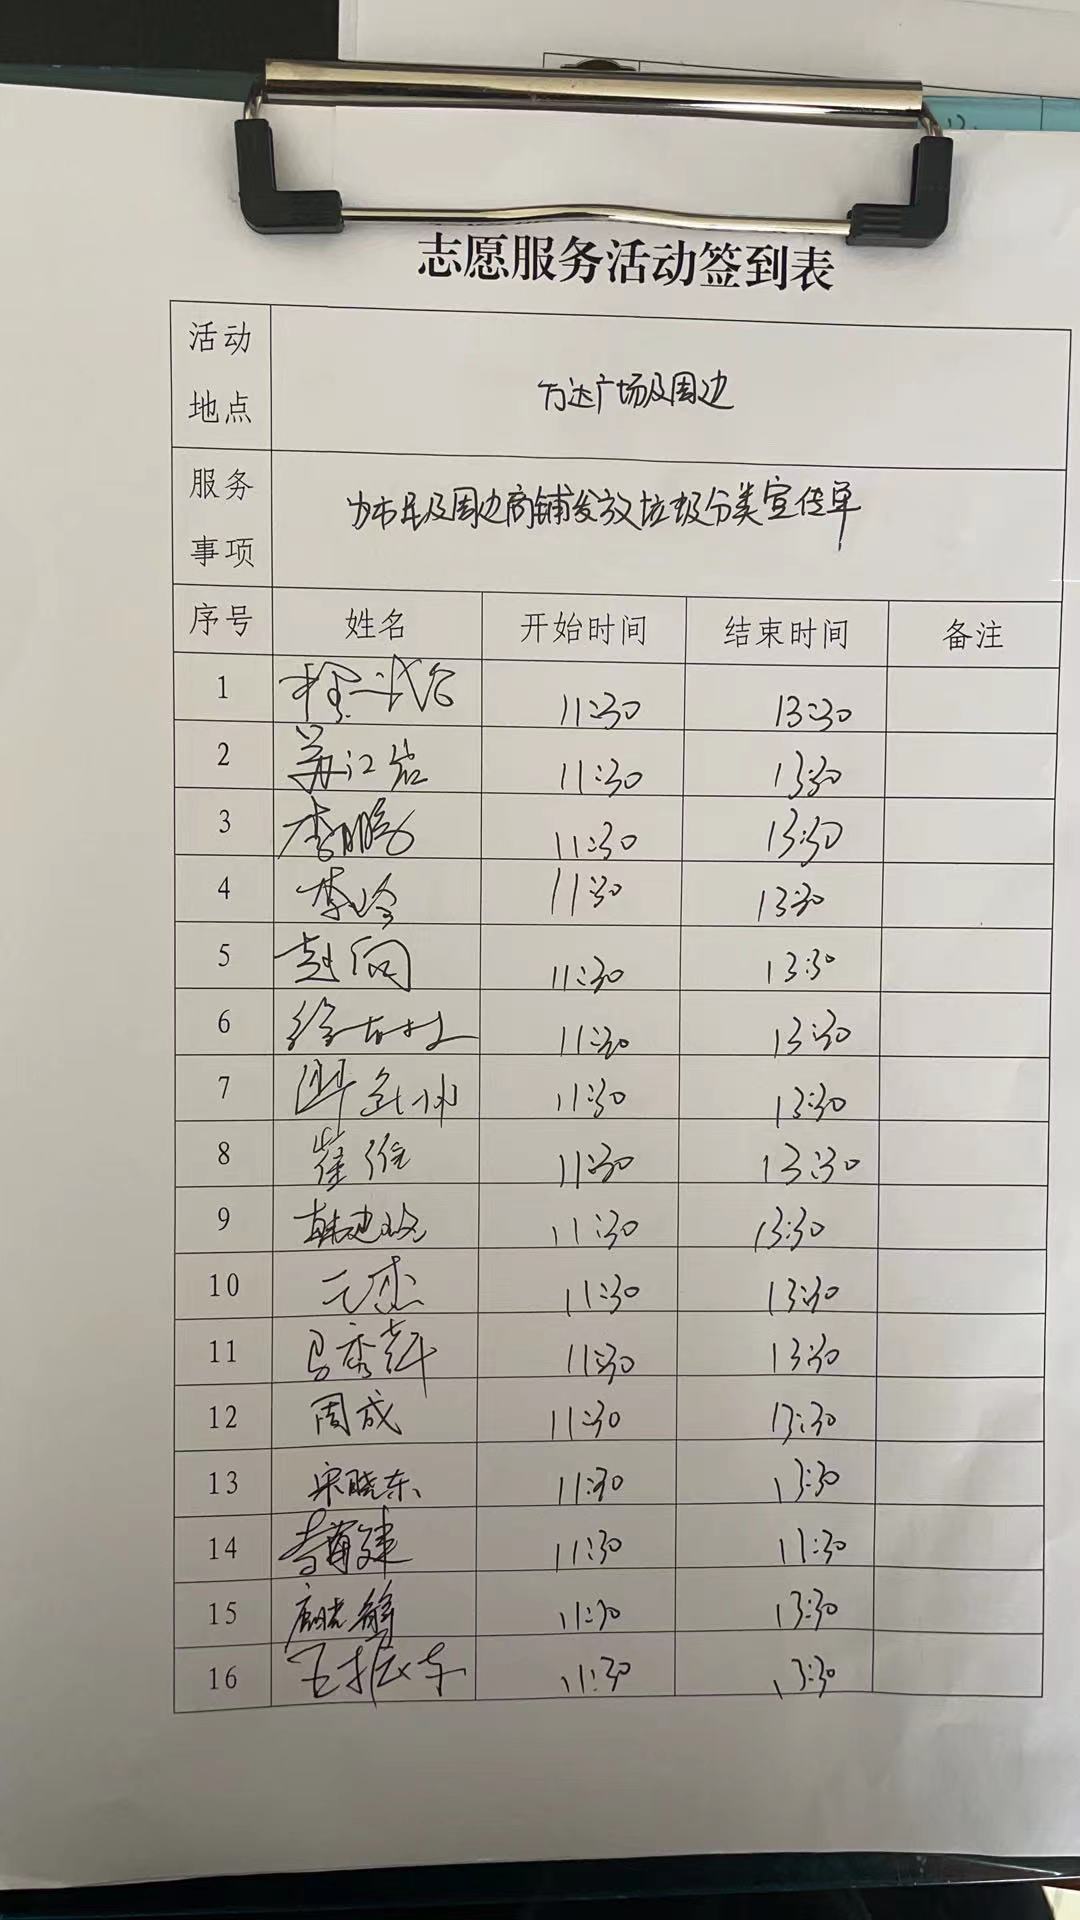 志愿服务活动签到表
活动地点 万达广场及周边
服务事项 为市民及周边商铺发放垃圾分类宣传单
序号 姓名 开始时间 结束时间 备注
1 11:30 13:30
2 苏江岩 11:30 13:30
3 李鹏 11:30 13:30
4 李玲 11:30 13:30
5 赵向 11:30 13:30
6 11:30 13:30
7 11:30 13:30
8 崔维 11:30 13:30
9 韩建政 11:30 13:30
10 元杰 11:30 13:30
11 11:30 13:30
12 周成 11:30 13:30
13 宋晓东 11:30 13:30
14 11:30 11:30
15 11:30 13:30
16 王振东 11:30 13:30